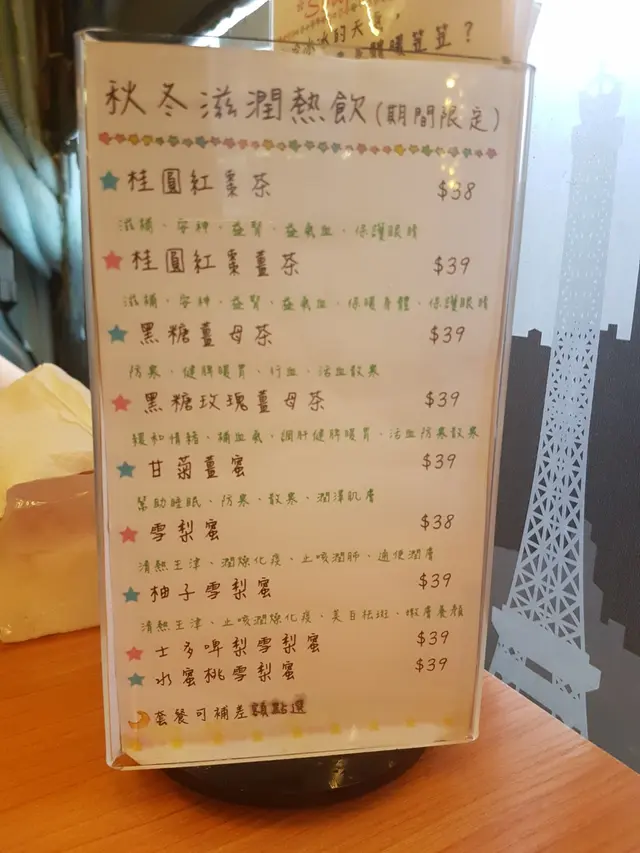 冰冰的天氣，
暖笠笠？
秋冬滋潤熱飲(期間限定)
桂圓紅棗茶 $38
滋補、安神、益腎、益氣血、保護眼睛
桂圓紅棗薑茶 $39
滋補、安神、益腎、益氣血、保暖身體、保護眼睛
黑糖薑母茶 $39
防寒、健脾暖胃、行血、活血散寒
黑糖玫瑰薑母茶 $39
緩和情緒、補血氣、調肝健脾暖胃、活血防寒散寒
甘菊薑蜜 $39
幫助睡眠、防寒、散寒、潤澤肌膚
雪梨蜜 $38
清熱生津、潤燥化痰、止咳潤肺、通便潤膚
柚子雪梨蜜 $39
清熱生津、止咳潤燥化痰、美白祛斑、嫩膚養顏
士多啤梨雪梨蜜 $39
水蜜桃雪梨蜜 $39
套餐可補差額點選